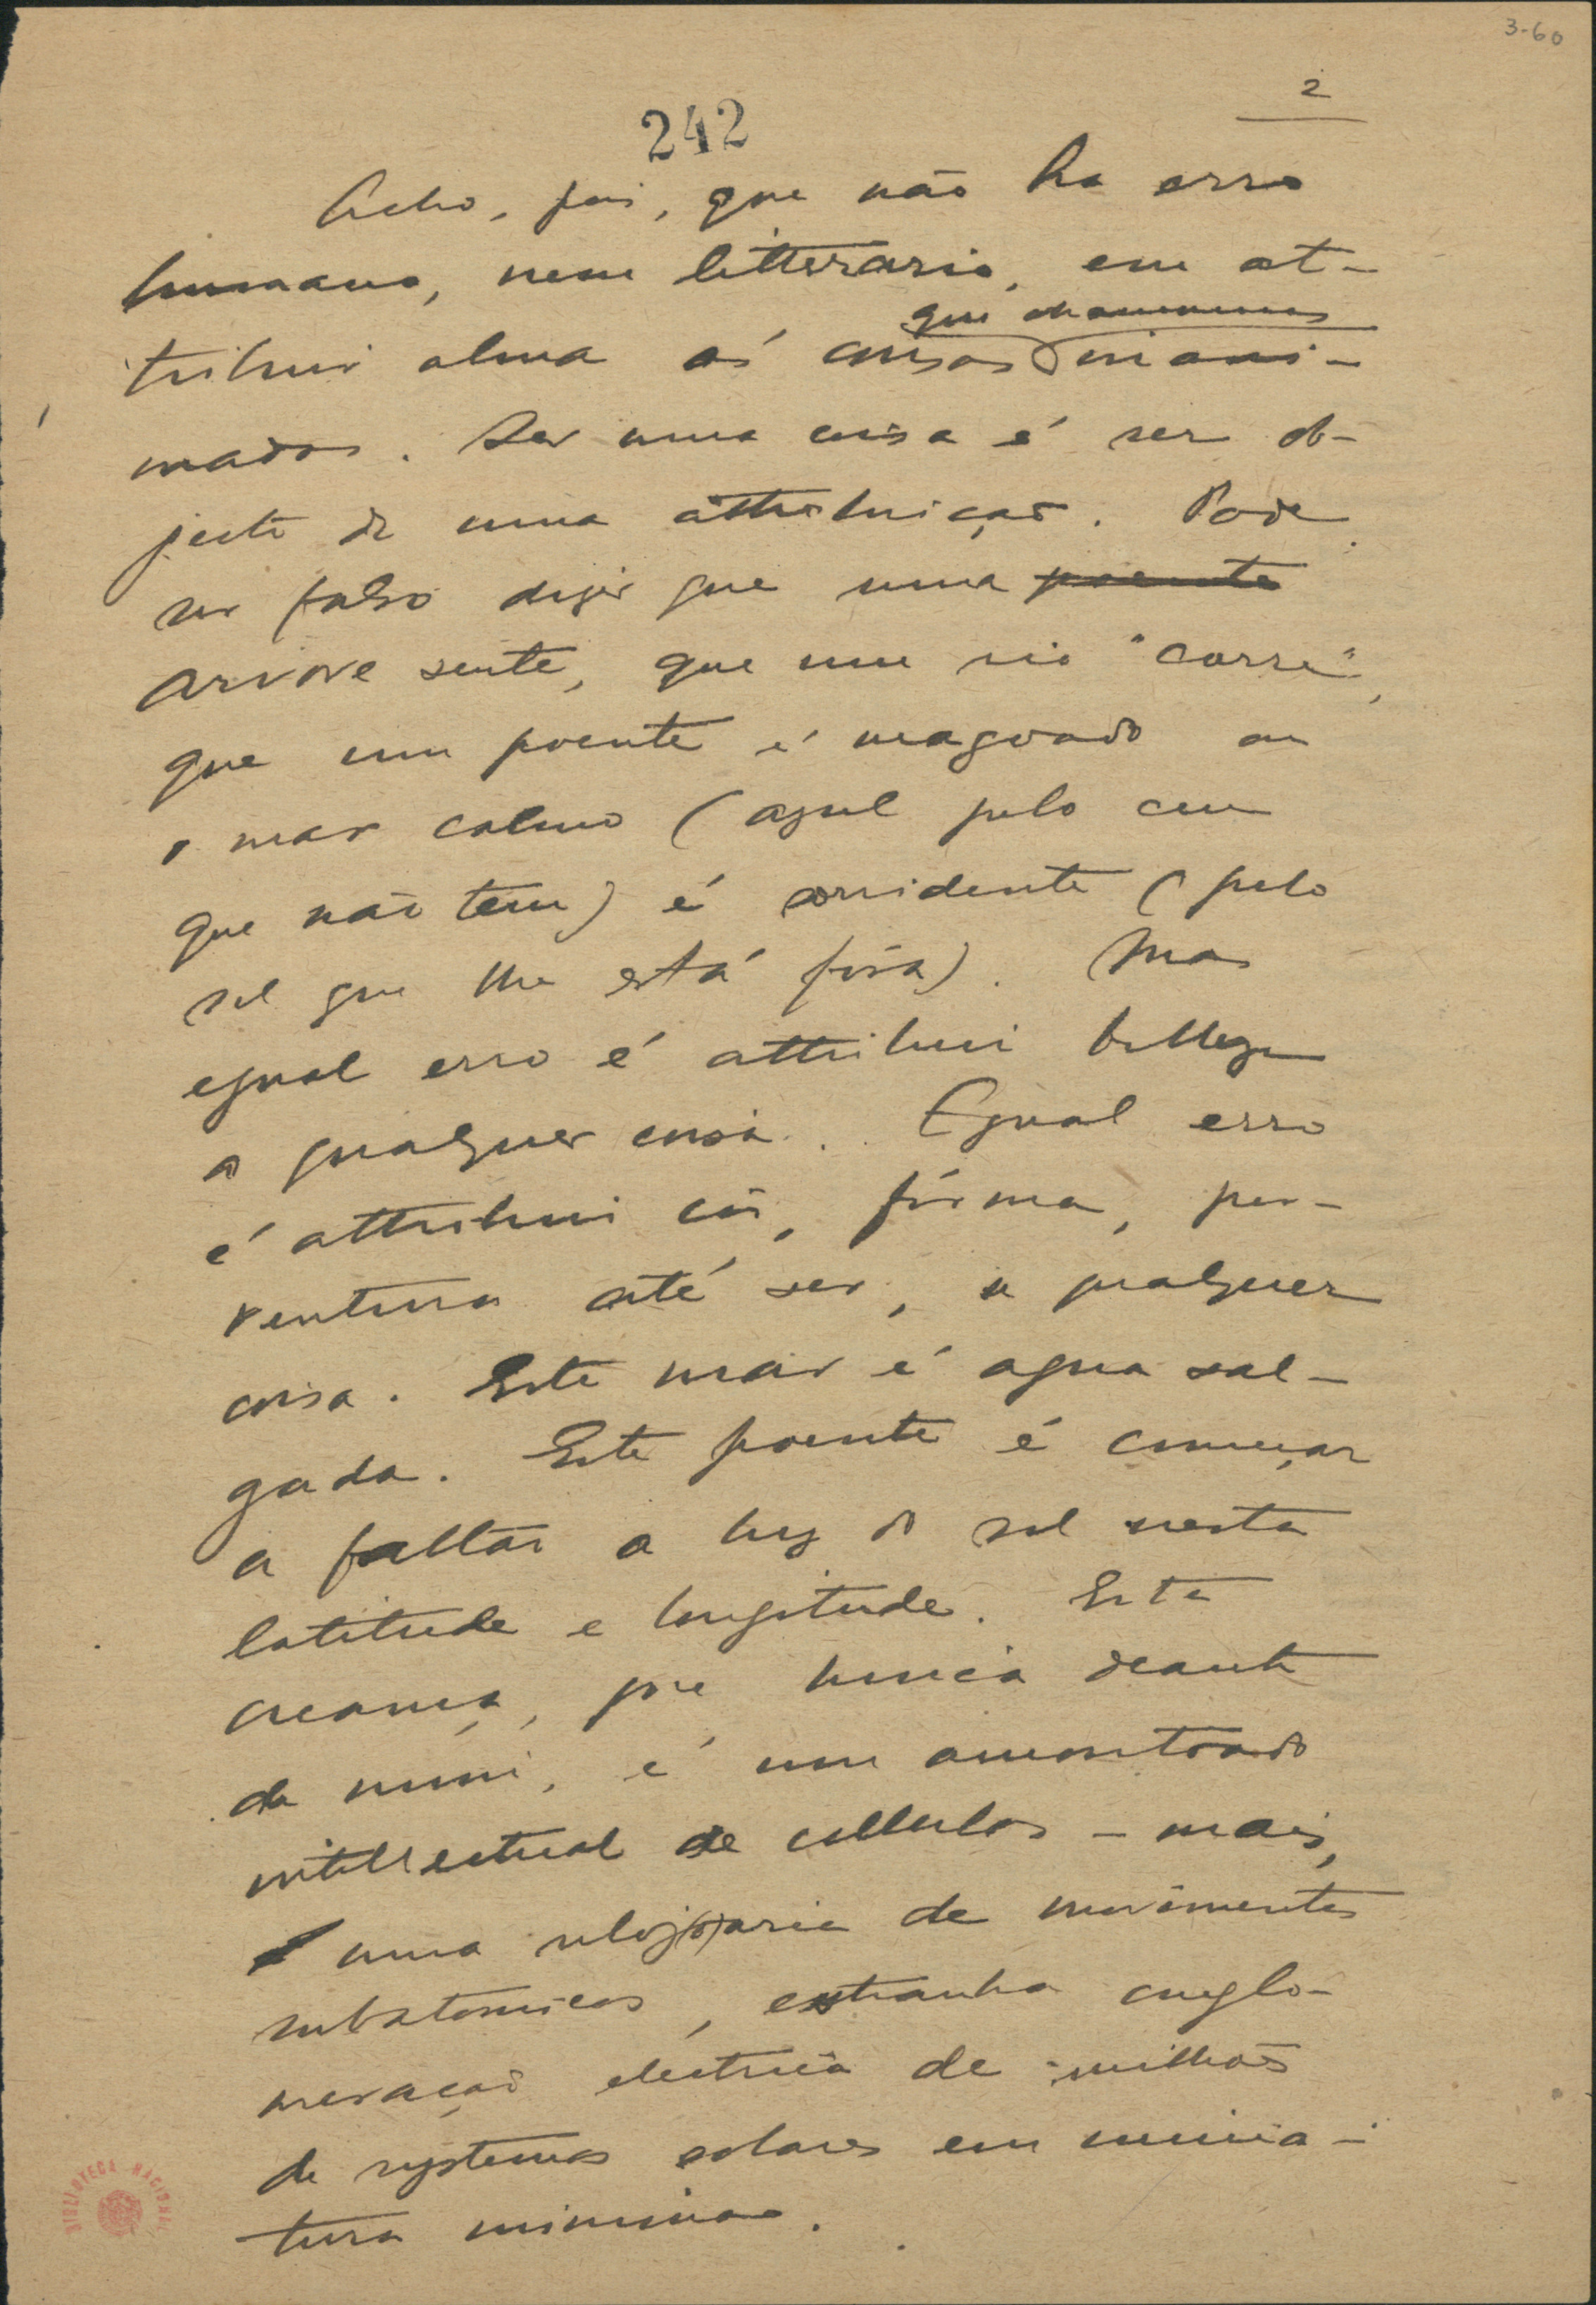 3-60
2
242
Acho, pois, que não ha erro
humano, nem litterario, em at-
que chamamos
tribuir alma ás coisas inani-
madas. Ser uma coisa é ser ob-
jecto de uma attribuição. Pode
ser falso dizer que uma poente
arvore sente, que um rio "corre",
que um poente é magoado ou
o mar calmo (azul pelo ceu
que não tem) é sorridente (pelo
sol que lhe está fóra). Mas
egual erro é attribuir belleza
a qualquer coisa. Egual erro
é attribuir côr, fórma, por-
ventura até ser, a qualquer
coisa. Este mar é agua sal-
gada. Este poente é começar
a faltar a luz do sol nesta
latitude e longitude. Esta
creança, que brinca deante
de mim, é um amontoado
intellectual de cellulas - mais,
é uma reloj(o)aria de movimentos
subatomicos, extranha conglo-
meração electrica de milhões
de systemas solares em minia-
tura minima.
BIBLIOTECA NACIONAL